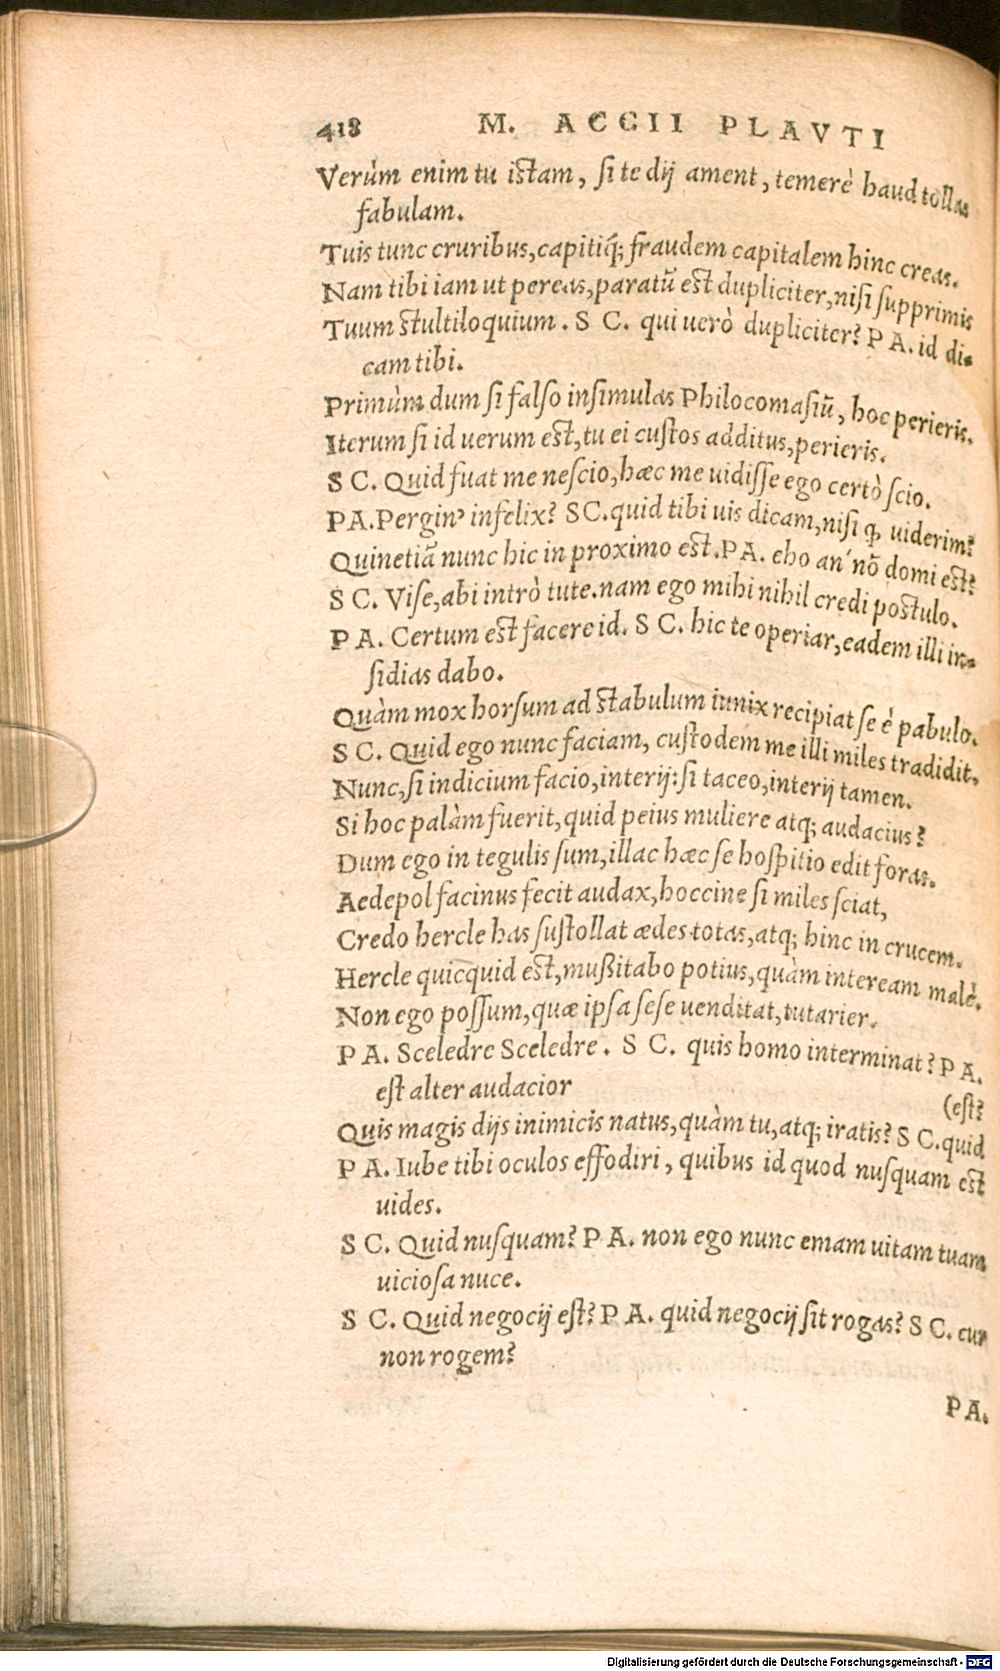 418 M. ACCII PLAVTI
Verùm enim tu istam, si te dij ament, temerè haud tollas
fabulam.
Tuis tunc cruribus, capitiq́; fraudem capitalem hinc creas.
Nam tibi iam ut pereas, paratũ est dupliciter, nisi supprimis
Tuum stultiloquium. S C. qui uerò dupliciter? P A. id di-
cam tibi.
Primùm dum si falso insimulas Philocomasiũ, hoc perieris.
Iterum si id uerum est, tu ei custos additus, perieris.
S C. Quid fuat me nescio, hæc me uidisse ego certò scio.
P A. Pergin' infelix? S C. quid tibi uis dicam, nisi ꝙ uiderim?
Quinetiã nunc hic in proximo est. P A. eho an' nõ domi est?
S C. Vise, abi intrò tute. nam ego mihi nihil credi postulo.
P A. Certum est facere id. S C. hic te operiar, eadem illi in-
sidias dabo.
Quàm mox horsum ad stabulum iunix recipiat se è pabulo.
S C. Quid ego nunc faciam, custodem me illi miles tradidit.
Nunc, si indicium facio, interij: si taceo, interij tamen.
Si hoc palàm fuerit, quid peius muliere atq; audacius?
Dum ego in tegulis sum, illac hæc se hospitio edit foras.
Aedepol facinus fecit audax, hoccine si miles sciat,
Credo hercle has sustollat ædes totas, atq; hinc in crucem.
Hercle quicquid est, mußitabo potius, quàm inteream malè.
Non ego possum, quæ ipsa sese uenditat, tutarier.
P A. Sceledre Sceledre. S C. quis homo interminat? P A.
est alter audacior (est?
Quis magis dijs inimicis natus, quàm tu, atq; iratis? S C. quid
P A. Iube tibi oculos effodiri, quibus id quod nusquam est
uides.
S C. Quid nusquam? P A. non ego nunc emam uitam tuam
uiciosa nuce.
S C. Quid negocij est? P A. quid negocij sit rogas? S C. cur
non rogem?
P A.
Digitalisierung gefördert durch die Deutsche Forschungsgemeinschaft - DFG